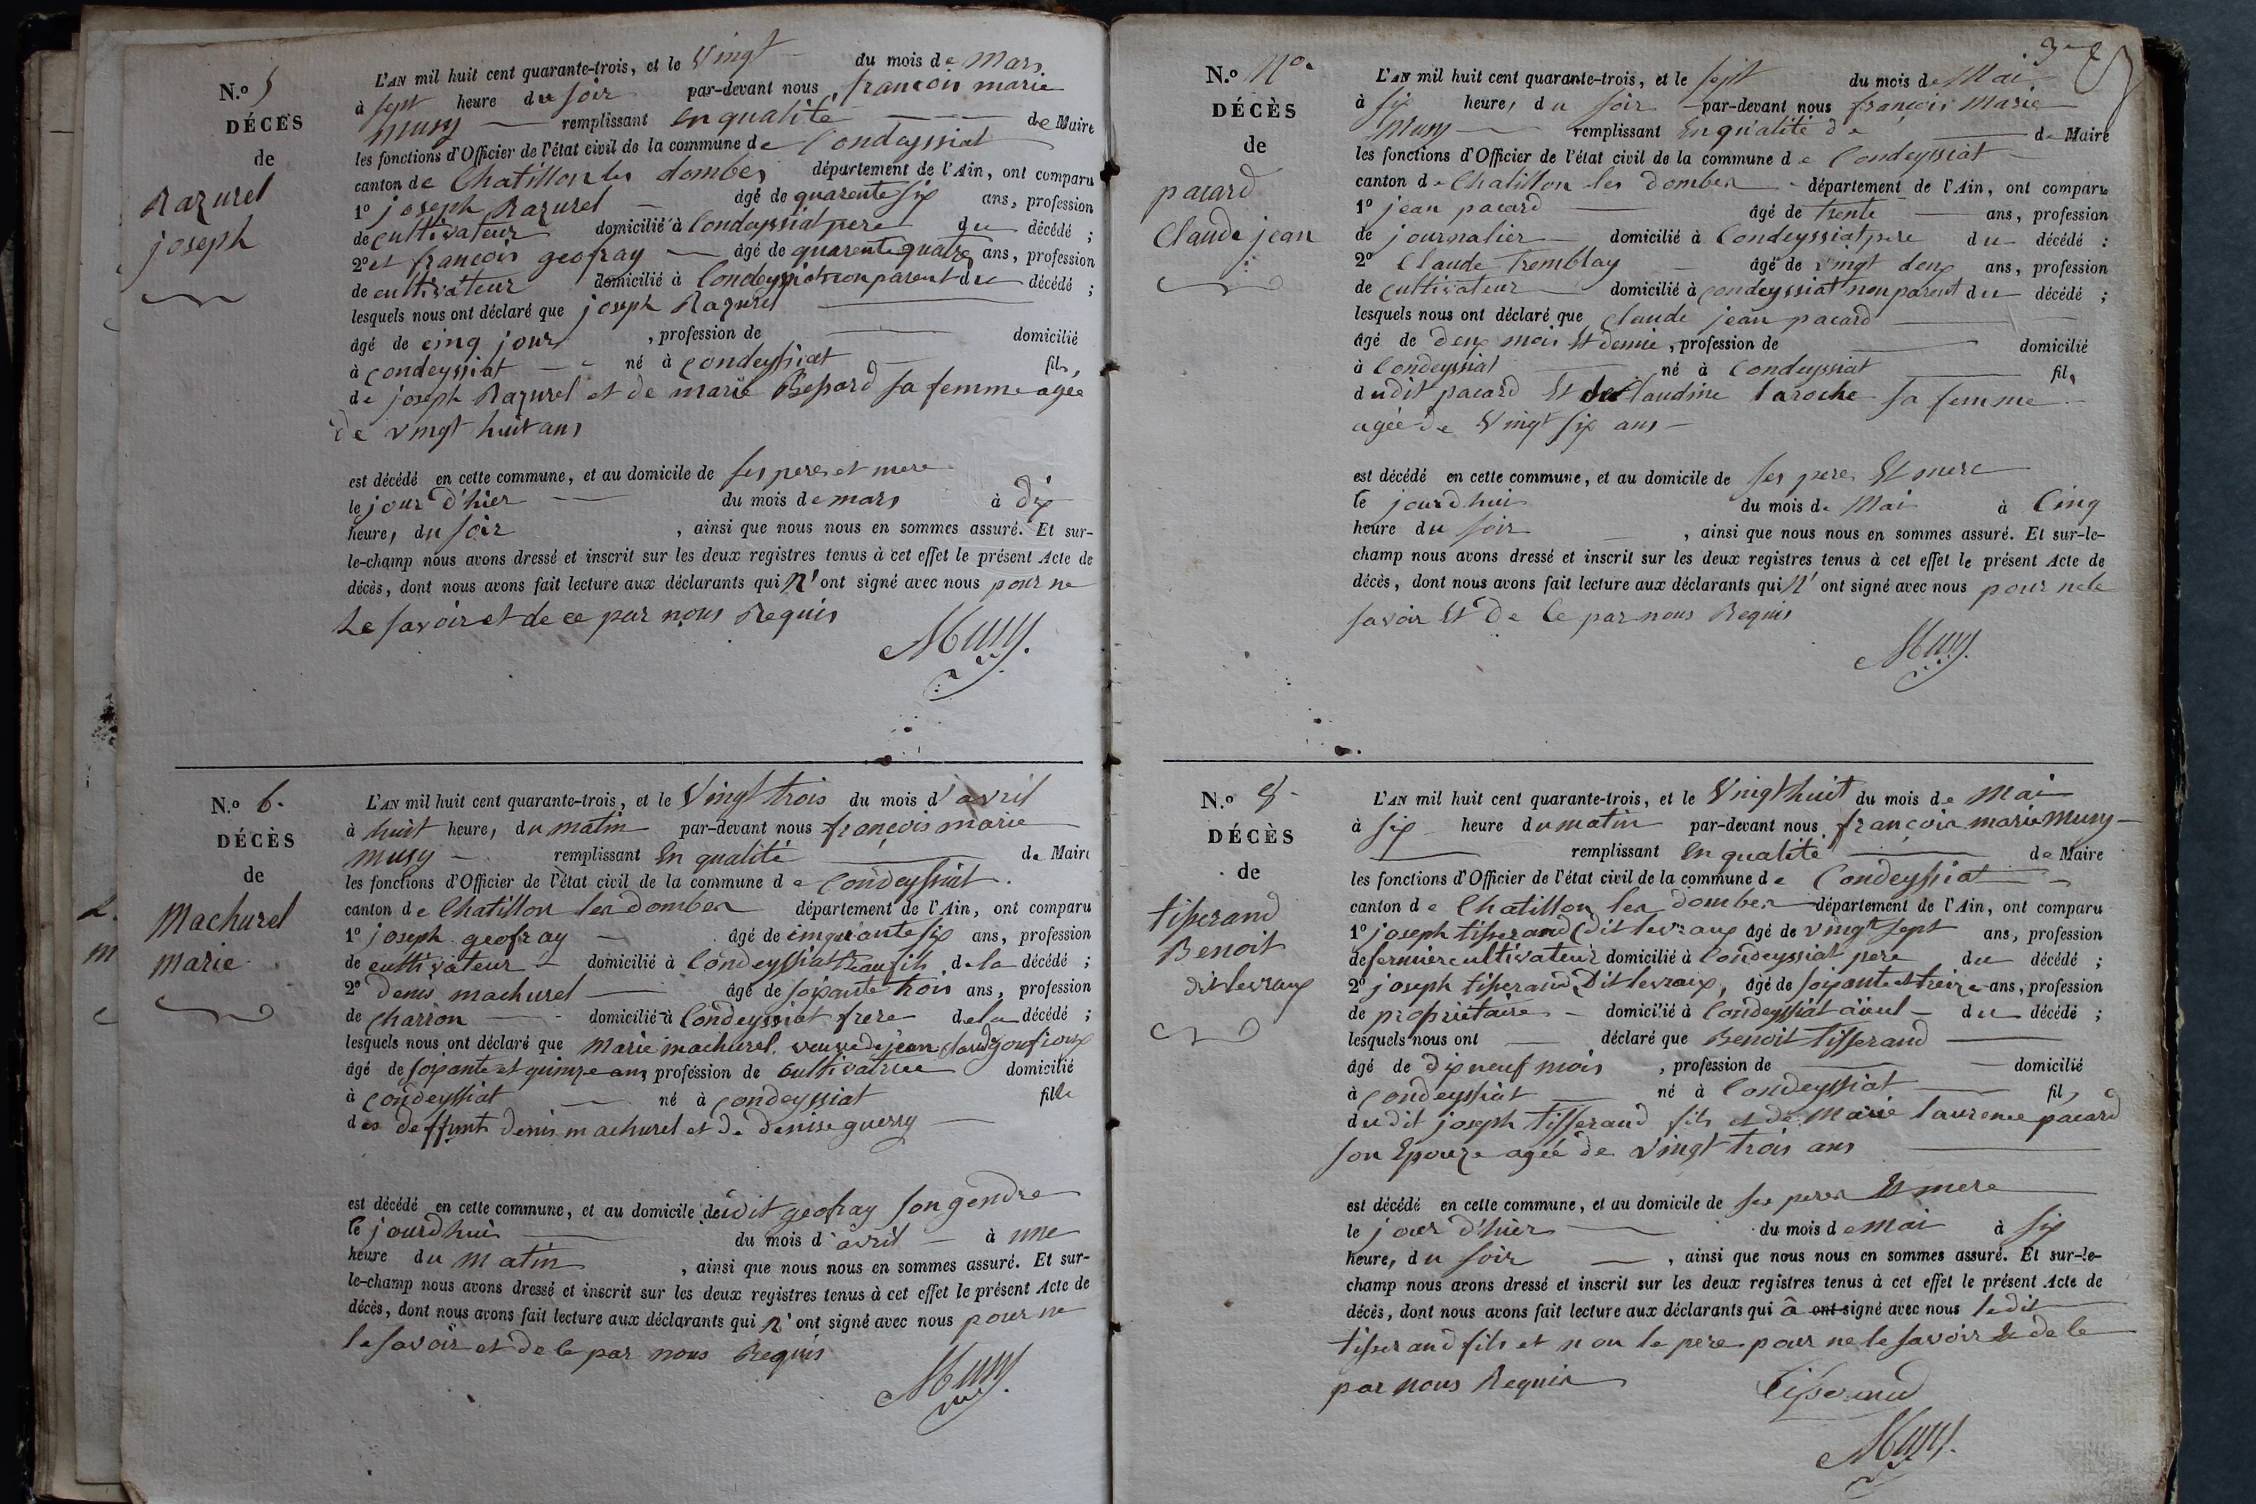 N.° 5
DÉCÈS
de
Razurel
joseph
L'AN mil huit cent quarante-trois, et le Vingt du mois de Mars
à sept heure du soir par-devant nous françois marie
musy remplissant En qualité de Maire
les fonctions d'Officier de l'état civil de la commune de Condeyssiat
canton de Chatillon les dombes département de l'Ain, ont comparu
1° joseph Razurel âgé de quarente six ans, profession
de cultivateur domicilié à Condeyssiat pere du décédé ;
2° et françois geofray âgé de quarente quatre ans, profession
de cultivateur domicilié à Condeyssiat non parent du décédé ;
lesquels nous ont déclaré que joseph Razurel
âgé de cinq jours , profession de domicilié
à condeyssiat né à Condeyssiat fils
de joseph Razurel et de marie Bessard sa femme agée
de vingt huit ans
est décédé en cette commune, et au domicile de ses peres et mere
le jour d'hier du mois de mars à dix
heures du soir , ainsi que nous nous en sommes assuré. Et sur-
le-champ nous avons dressé et inscrit sur les deux registres tenus à cet effet le présent Acte de
décès, dont nous avons fait lecture aux déclarants qui n'ont signé avec nous pour ne
Le savoir et de ce par nous Requis
Musy
N.° 6.
DÉCÈS
de
Machurel
marie
L'AN mil huit cent quarante-trois, et le Vingt trois du mois d'avril
à huit heures du matin par-devant nous françois marie
musy remplissant En qualité de Maire
les fonctions d'Officier de l'état civil de la commune de Condeyssiat.
canton de Chatillon les dombes département de l'Ain, ont comparu
1° joseph geofray âgé de cinquante six ans, profession
de cultivateur domicilié à Condeyssiat Beaufils de la décédé ;
2° denis machurel âgé de soixante trois ans, profession
de charron domicilié à Condeyssiat frere de la décédé ;
lesquels nous ont déclaré que Marie machurel veuve de jean Claude
âgé de soixante et quinze ans profession de cultivatrice domicilié
à Condeyssiat né à condeyssiat fille
des deffunts denis machurel et de denise guerry
est décédé en cette commune, et au domicile dudit geofray son gendre
le jourdhui du mois d'avril à une
heure du matin , ainsi que nous nous en sommes assuré. Et sur-
le-champ nous avons dressé et inscrit sur les deux registres tenus à cet effet le présent Acte de
décès, dont nous avons fait lecture aux déclarants qui n'ont signé avec nous pour ne
le savoir et de ce par nous Requis
Musy
N.° 7°.
DÉCÈS
de
pacard
Claude jean
L'AN mil huit cent quarante-trois, et le sept du mois de Mai
à six heures du soir par-devant nous françois Marie
Musy remplissant En qualité de de Maire
les fonctions d'Officier de l'état civil de la commune de Condeyssiat
canton de Chatillon les Dombes département de l'Ain, ont comparu
1° jean pacard âgé de trente ans, profession
de journalier domicilié à Condeyssiat pere du décédé ;
2° Claude Tremblay âgé de vingt deux ans, profession
de cultivateur domicilié à condeyssiat non parent du décédé ;
lesquels nous ont déclaré que Claude jean pacard
âgé de deux mois Et demie , profession de domicilié
à Condeyssiat né à Condeyssiat fils
dudit pacard Et de Claudine laroche sa femme
agée de Vingt six ans
est décédé en cette commune, et au domicile de ses peres Et mere
le jourdhui du mois de Mai à Cinq
heure du soir , ainsi que nous nous en sommes assuré. Et sur-le-
champ nous avons dressé et inscrit sur les deux registres tenus à cet effet le présent Acte de
décès, dont nous avons fait lecture aux déclarants qui n'ont signé avec nous pour ne le
savoir Et de Ce par nous Requis
Musy
N.° 8
DÉCÈS
de
tisserand
Benoit
dit levraux
L'AN mil huit cent quarante-trois, et le Vingt huit du mois de Mai
à six heure du matin par-devant nous françois marie Musy
remplissant En qualité de Maire
les fonctions d'Officier de l'état civil de la commune de Condeyssiat
canton de Chatillon les Dombes département de l'Ain, ont comparu
1° joseph tisserand Dit levraux âgé de vingt sept ans, profession
de fermier cultivateur domicilié à Condeyssiat pere du décédé ;
2° joseph tisserand Dit levraux, âgé de soixante et treize ans, profession
de propriétaire domicilié à Condeyssiat aïeul du décédé ;
lesquels nous ont déclaré que Benoit Tisserand
âgé de dix neuf mois , profession de domicilié
à condeyssiat né à Condeyssiat fils
dudit joseph Tisserand fils et de Marie laurence pacard
son Epouze agée de Vingt trois ans
est décédé en cette commune, et au domicile de ses peres Et mere
le jour d'hier du mois de Mai à six
heures du soir , ainsi que nous nous en sommes assuré. Et sur-le-
champ nous avons dressé et inscrit sur les deux registres tenus à cet effet le présent Acte de
décès, dont nous avons fait lecture aux déclarants qui â ont signé avec nous ledit
tisserand fils et non le pere pour ne le savoir Et de Ce
par nous Requis
Tisserand
Musy